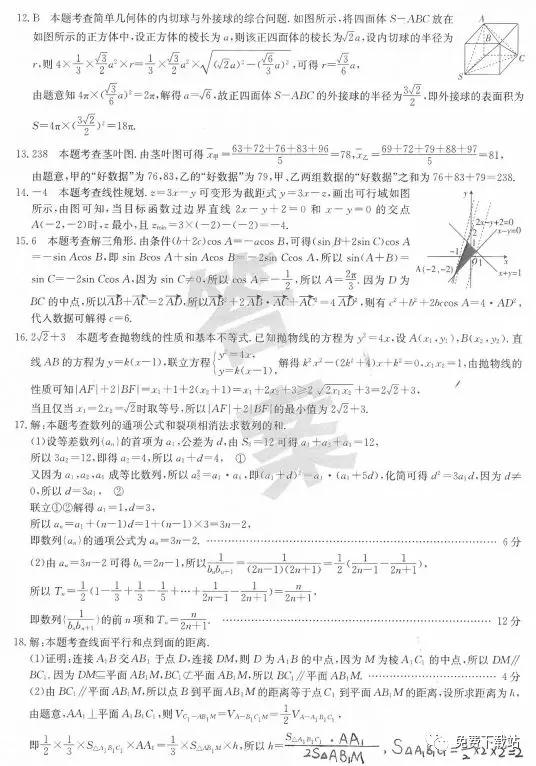 12. B　本题考查简单几何体的内切球与外接球的综合问题. 如图所示,将四面体 S-ABC 放在
如图所示的正方体中,设正方体的棱长为 a,则该正四面体的棱长为√2a,设内切球的半径为
r,则 4×1/3×√3/2a²×r=1/3×√3/2a²×√((√2a)²-(√6/3a)²),可得 r=√3/6a,
由题意知 4π×(√3/6a)²=2π,解得 a=√6,故正四面体 S-ABC 的外接球的半径为3√2/2,即外接球的表面积为
S=4π×(3√2/2)²=18π.
A
B
C
S
13. 238　本题考查茎叶图. 由茎叶图可得 x̄甲=(63+72+76+83+96)/5=78,x̄乙=(69+72+79+88+97)/5=81,
由题意,甲的“好数据”为 76,83,乙的“好数据”为 79,甲、乙两组数据的“好数据”之和为 76+83+79=238.
14. -4　本题考查线性规划. z=3x-y 可变形为截距式 y=3x-z,画出可行域如图
所示,由图可知,当目标函数过边界直线 2x-y+2=0 和 x-y=0 的交点
A(-2,-2)时,z 最小,且 zmin=3×(-2)-(-2)=-4.
y
2x-y+2=0
x-y=0
A(-2,-2)
x+y=1
15. 6　本题考查解三角形. 由条件(b+2c)cos A=-acos B,可得(sin B+2sin C)cos A
=-sin Acos B,即 sin Bcos A+sin Acos B=-2sin Ccos A,所以 sin(A+B)=
sin C=-2sin Ccos A,因为 sin C≠0,所以 cos A=-1/2,所以 A=2π/3. 因为 D 为
BC 的中点,所以AB+AC=2AD,所以AB²+2AB·AC+AC²=4AD²,则有 c²+b²+2bccos A=4·AD²,
代人数据可解得 c=6.
16. 2√2+3　本题考查抛物线的性质和基本不等式. 已知抛物线的方程为 y²=4x,设 A(x₁,y₁),B(x₂,y₂). 直
线 AB 的方程为 y=k(x-1),联立方程{y²=4x, y=k(x-1), 解得 k²x²-(2k²+4)x+k²=0,x₁x₂=1,由抛物线的
性质可知|AF|+2|BF|=x₁+1+2(x₂+1)=x₁+2x₂+3≥2√(2x₁x₂)+3=2√2+3,
当且仅当 x₁=2x₂=√2时取等号,所以|AF|+2|BF|的最小值为 2√2+3.
17. 解:本题考查数列的通项公式和裂项相消法求数列的和.
(1)设等差数列{aₙ}的首项为 a₁,公差为 d,由 S₃=12 可得 a₁+a₂+a₃=12,
所以 3a₂=12,即得 a₂=4,所以 a₁+d=4,　①
又因为 a₁,a₂,a₆ 成等比数列,所以 a₂²=a₁·a₆,即(a₁+d)²=a₁·(a₁+5d),化简可得 d²=3a₁d,因为 d≠
0,所以 d=3a₁,　②
联立①②解得 a₁=1,d=3,
所以 aₙ=a₁+(n-1)d=1+(n-1)×3=3n-2,
即数列{aₙ}的通项公式为 aₙ=3n-2. …… 6 分
(2)由 aₙ=3n-2 可得 bₙ=2n-1,所以1/(bₙbₙ₊₁)=1/((2n-1)(2n+1))=1/2(1/(2n-1)-1/(2n+1)),
所以 Tₙ=1/2(1-1/3+1/3-1/5+…+1/(2n-1)-1/(2n+1))=n/(2n+1),
即数列{1/(bₙbₙ₊₁)}的前 n 项和 Tₙ=n/(2n+1). …… 12 分
18. 解:本题考查线面平行和点到面的距离.
(1)证明:连接 A₁B 交 AB₁ 于点 D,连接 DM,则 D 为 A₁B 的中点,因为 M 为棱 A₁C₁ 的中点,所以 DM∥
BC₁. 因为 DM⊂平面 AB₁M,BC₁⊄平面 AB₁M,所以 BC₁∥平面 AB₁M. …… 4 分
(2)由 BC₁∥平面 AB₁M,所以点 B 到平面 AB₁M 的距离等于点 C₁ 到平面 AB₁M 的距离,设所求距离为 h,
由题意,AA₁⊥平面 A₁B₁C₁,则 V_C₁-AB₁M=V_A-B₁C₁M=1/2V_A-A₁B₁C₁,
即1/2×1/3×S△A₁B₁C₁×AA₁=1/3×S△AB₁M×h,所以 h=S△A₁B₁C₁·AA₁/2S△AB₁M, S△A₁B₁C₁=½×2×2=2
答案
免费下载站